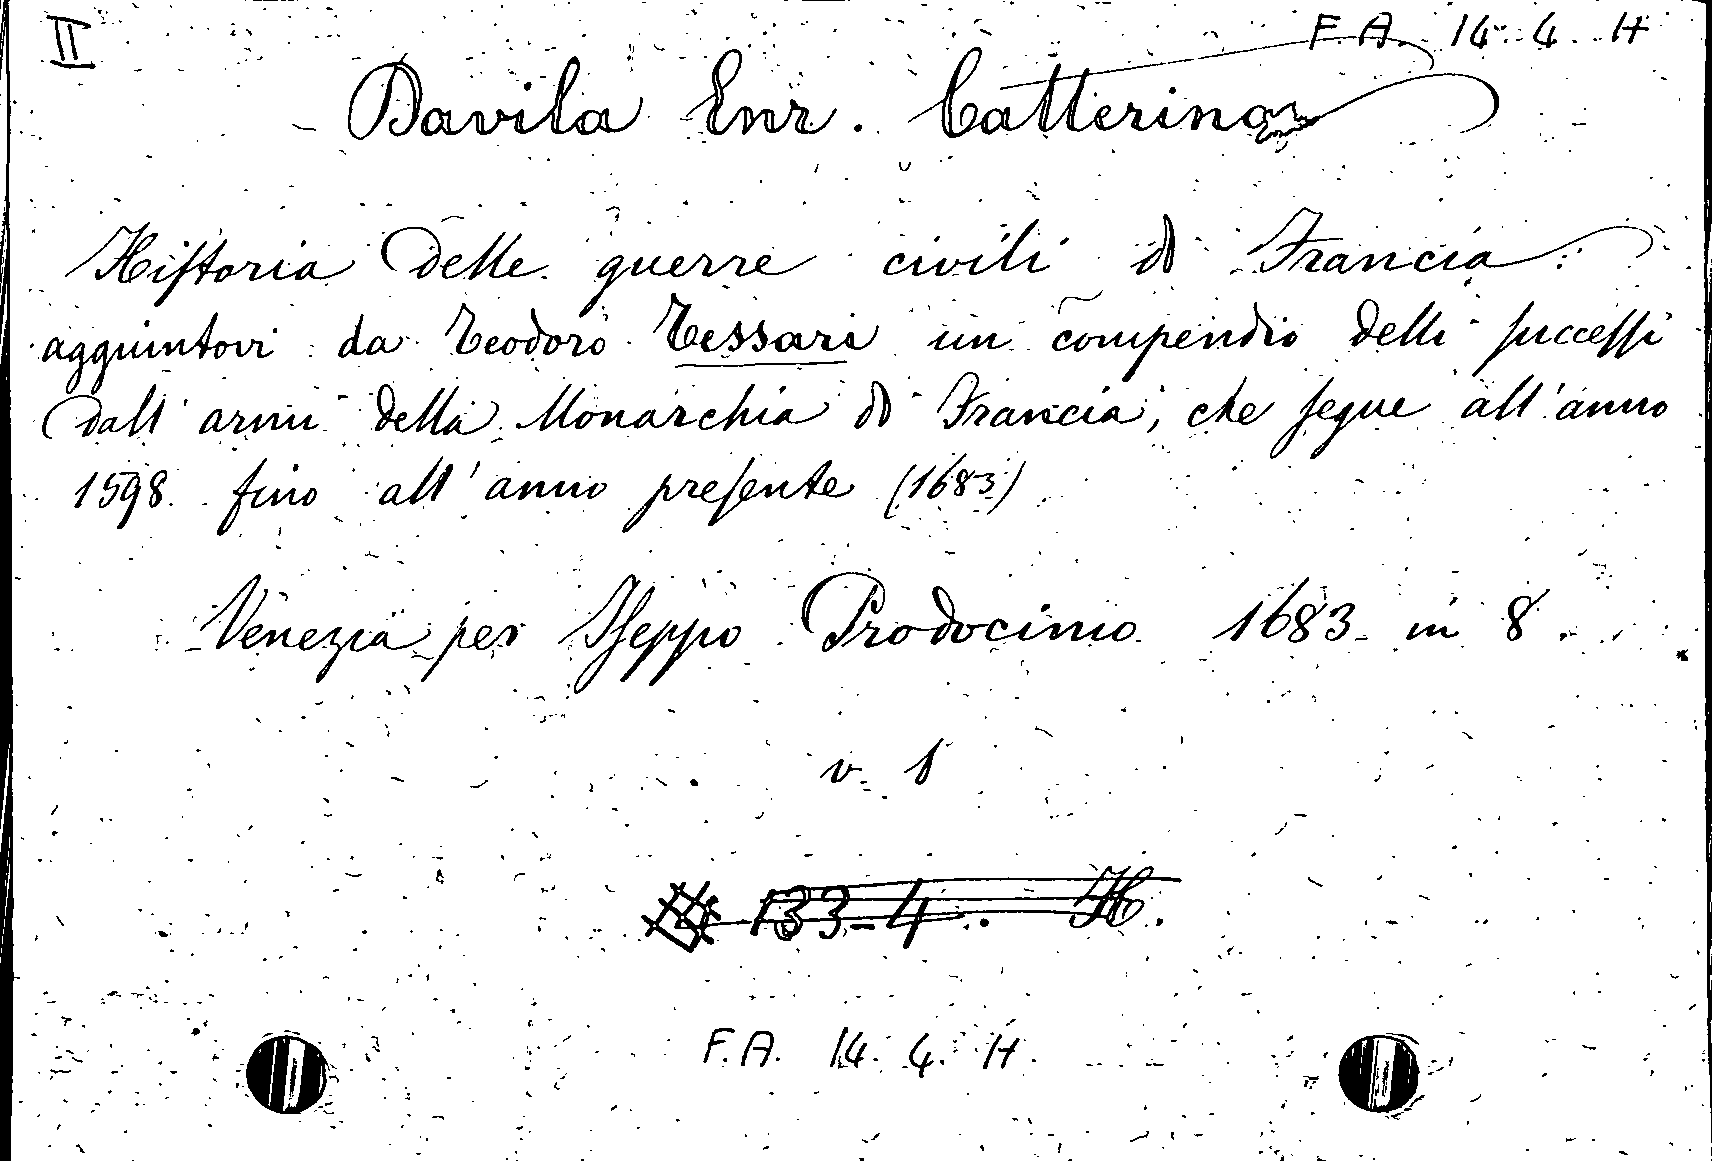 II
F. A. 14. 4. H
Davila Enr. Catterino
Hiſtoria delle guerre civili di Francia:
aggiuntovi da Teodoro Tessari un compendio delli ſucceſſi
dall'armi della Monarchia di Francia, che ſegue all'anno
1598 fino all'anno preſente (1683)
Venezia per Iſeppo Prodocimo 1683 in 8.
v. 1
133-4. H.
F. A. 14. 4. H.